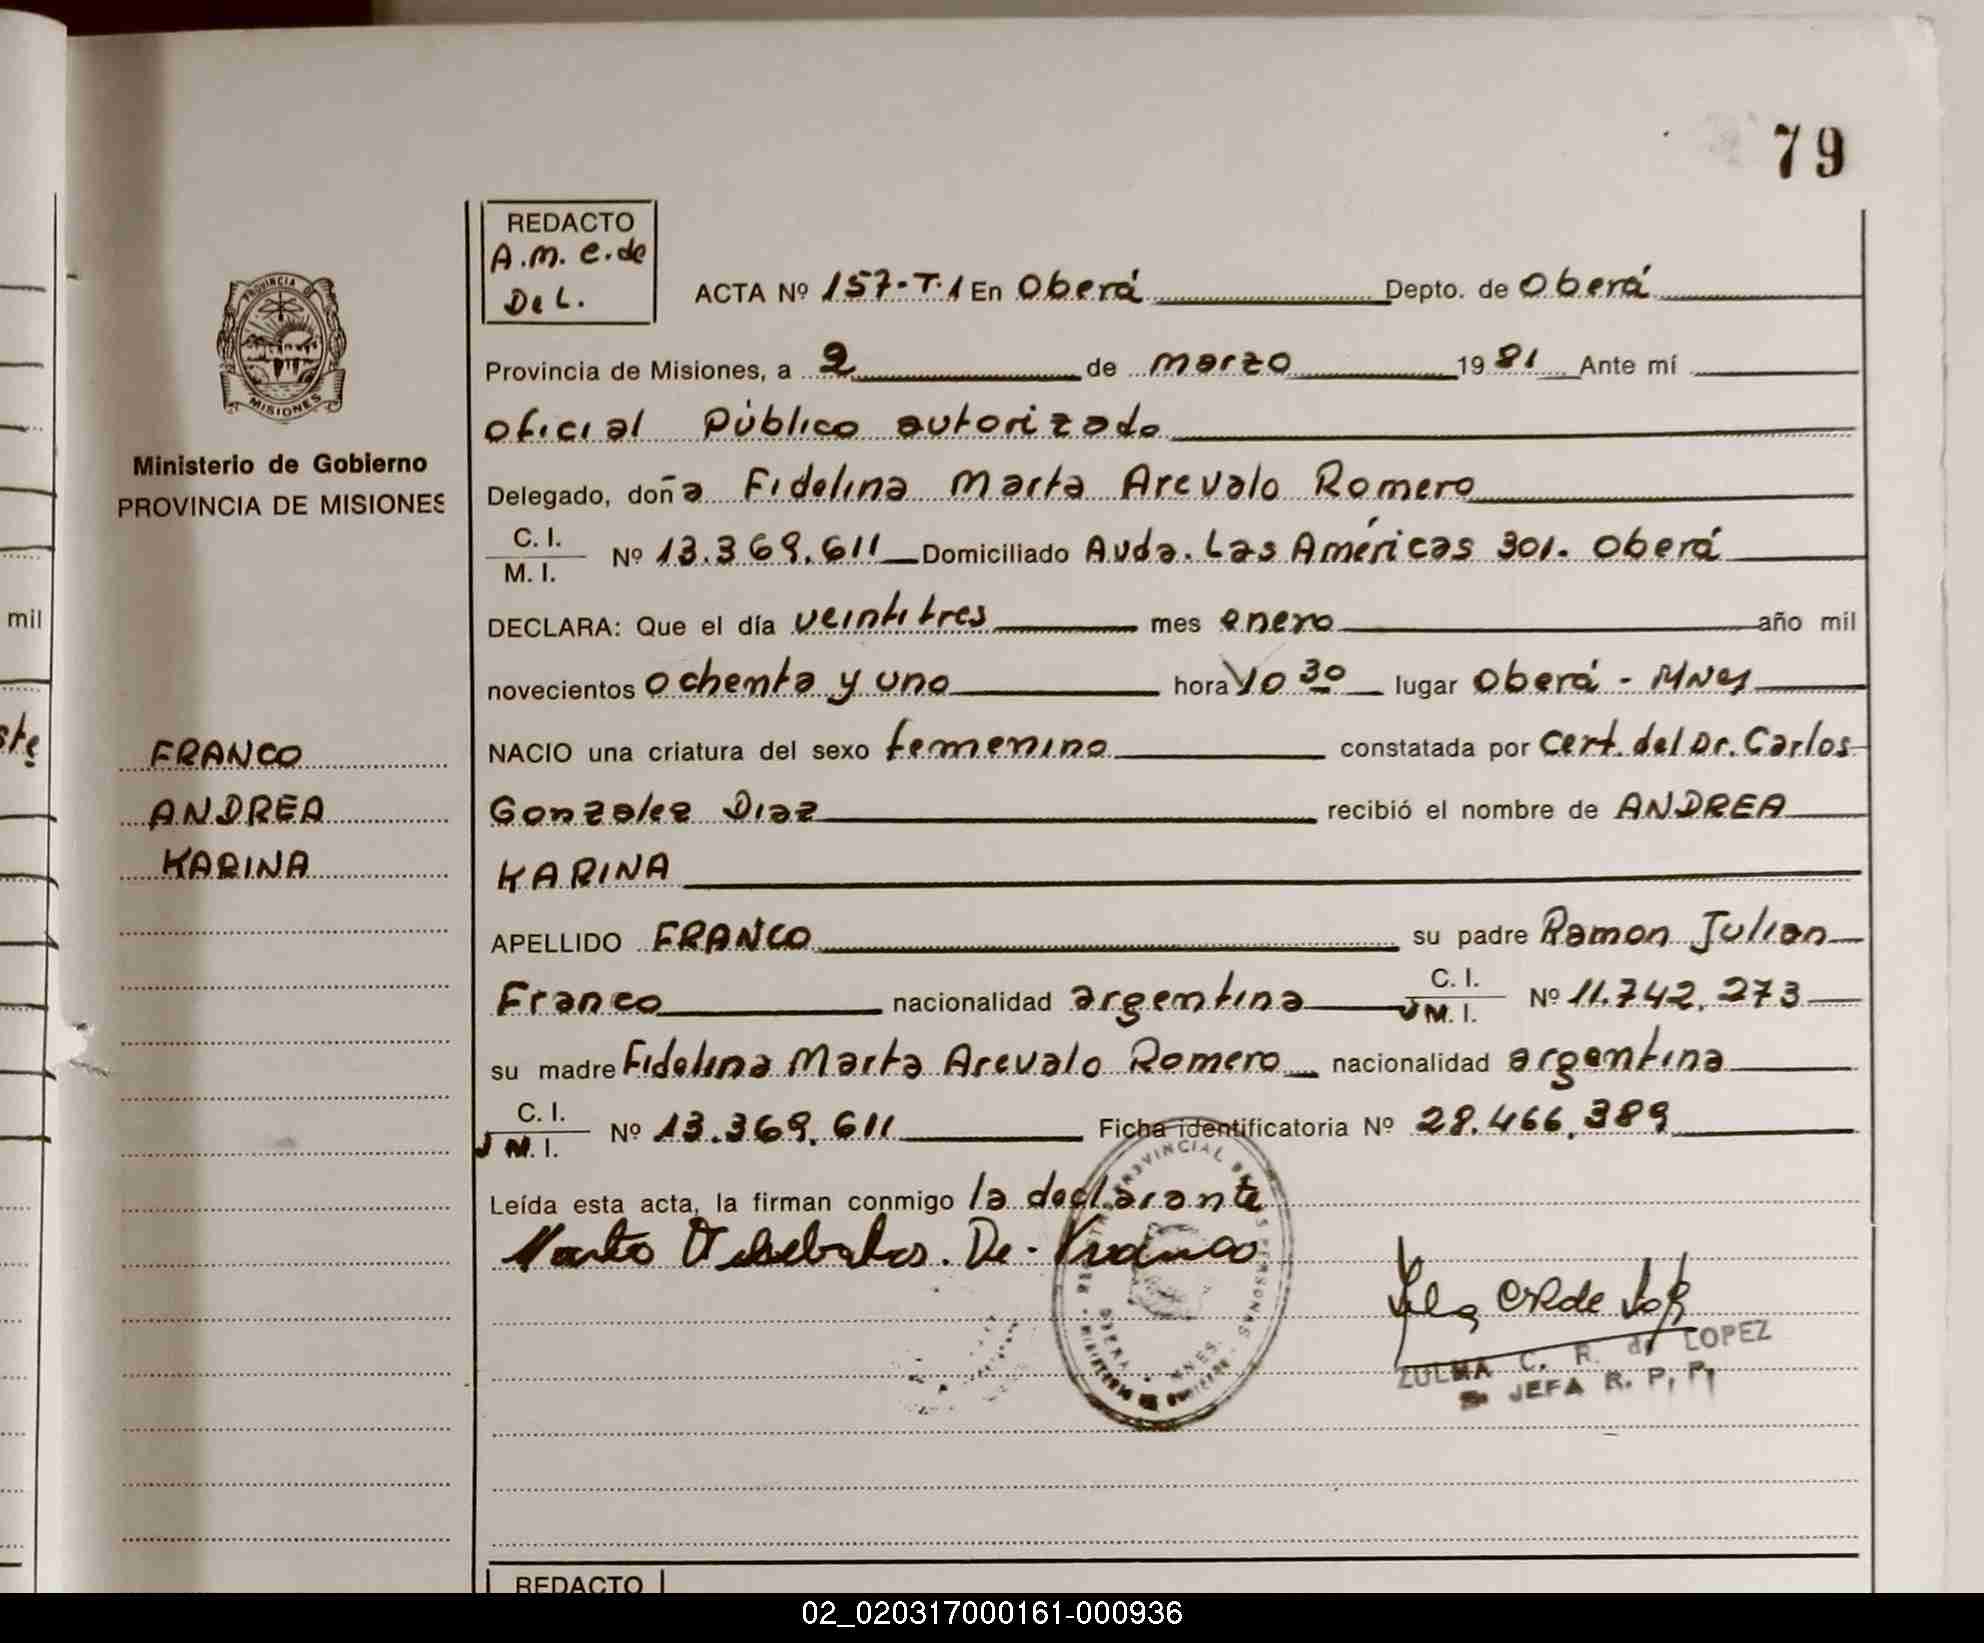 79
REDACTO
A.M. C. de
De L.
ACTA Nº 157-T.1 En Oberá Depto. de Oberá
Provincia de Misiones, a 2 de marzo 1981 Ante mí
oficial Público autorizado
Delegado, doña Fidelina Marta Arevalo Romero
C. I.
M. I.
Nº 13.369.611 Domiciliado Avda. Las Américas 301. Oberá
DECLARA: Que el día veintitres mes enero año mil
novecientos ochenta y uno hora 10 30 lugar Oberá - MNES
NACIO una criatura del sexo femenino constatada por Cert. del Dr. Carlos
Gonzalez Diaz recibió el nombre de ANDREA
KARINA
APELLIDO FRANCO su padre Ramon Julian
Franco nacionalidad argentina C. I. M. I. Nº 11.742.273
su madre Fidelina Marta Arevalo Romero nacionalidad argentina
C. I.
M. I.
Nº 13.369.611 Ficha identificatoria Nº 28.466.389
Leída esta acta, la firman conmigo la declarante
De. Franco
ZULMA C. R. de LOPEZ
JEFA R. P. P.
PROVINCIA DE
MISIONES
Ministerio de Gobierno
PROVINCIA DE MISIONES
FRANCO
ANDREA
KARINA
mil
REDACTO
02_020317000161-000936